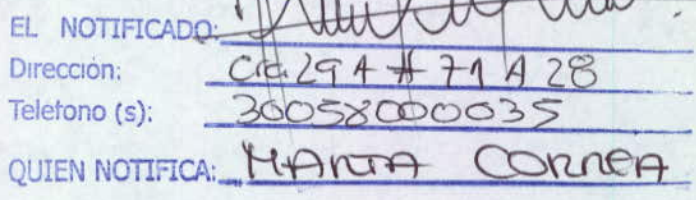 EL NOTIFICADO:
Dirección: Cra 29 A # 71 A 28
Teléfono (s): 30058000035
QUIEN NOTIFICA: MARTA CORREA